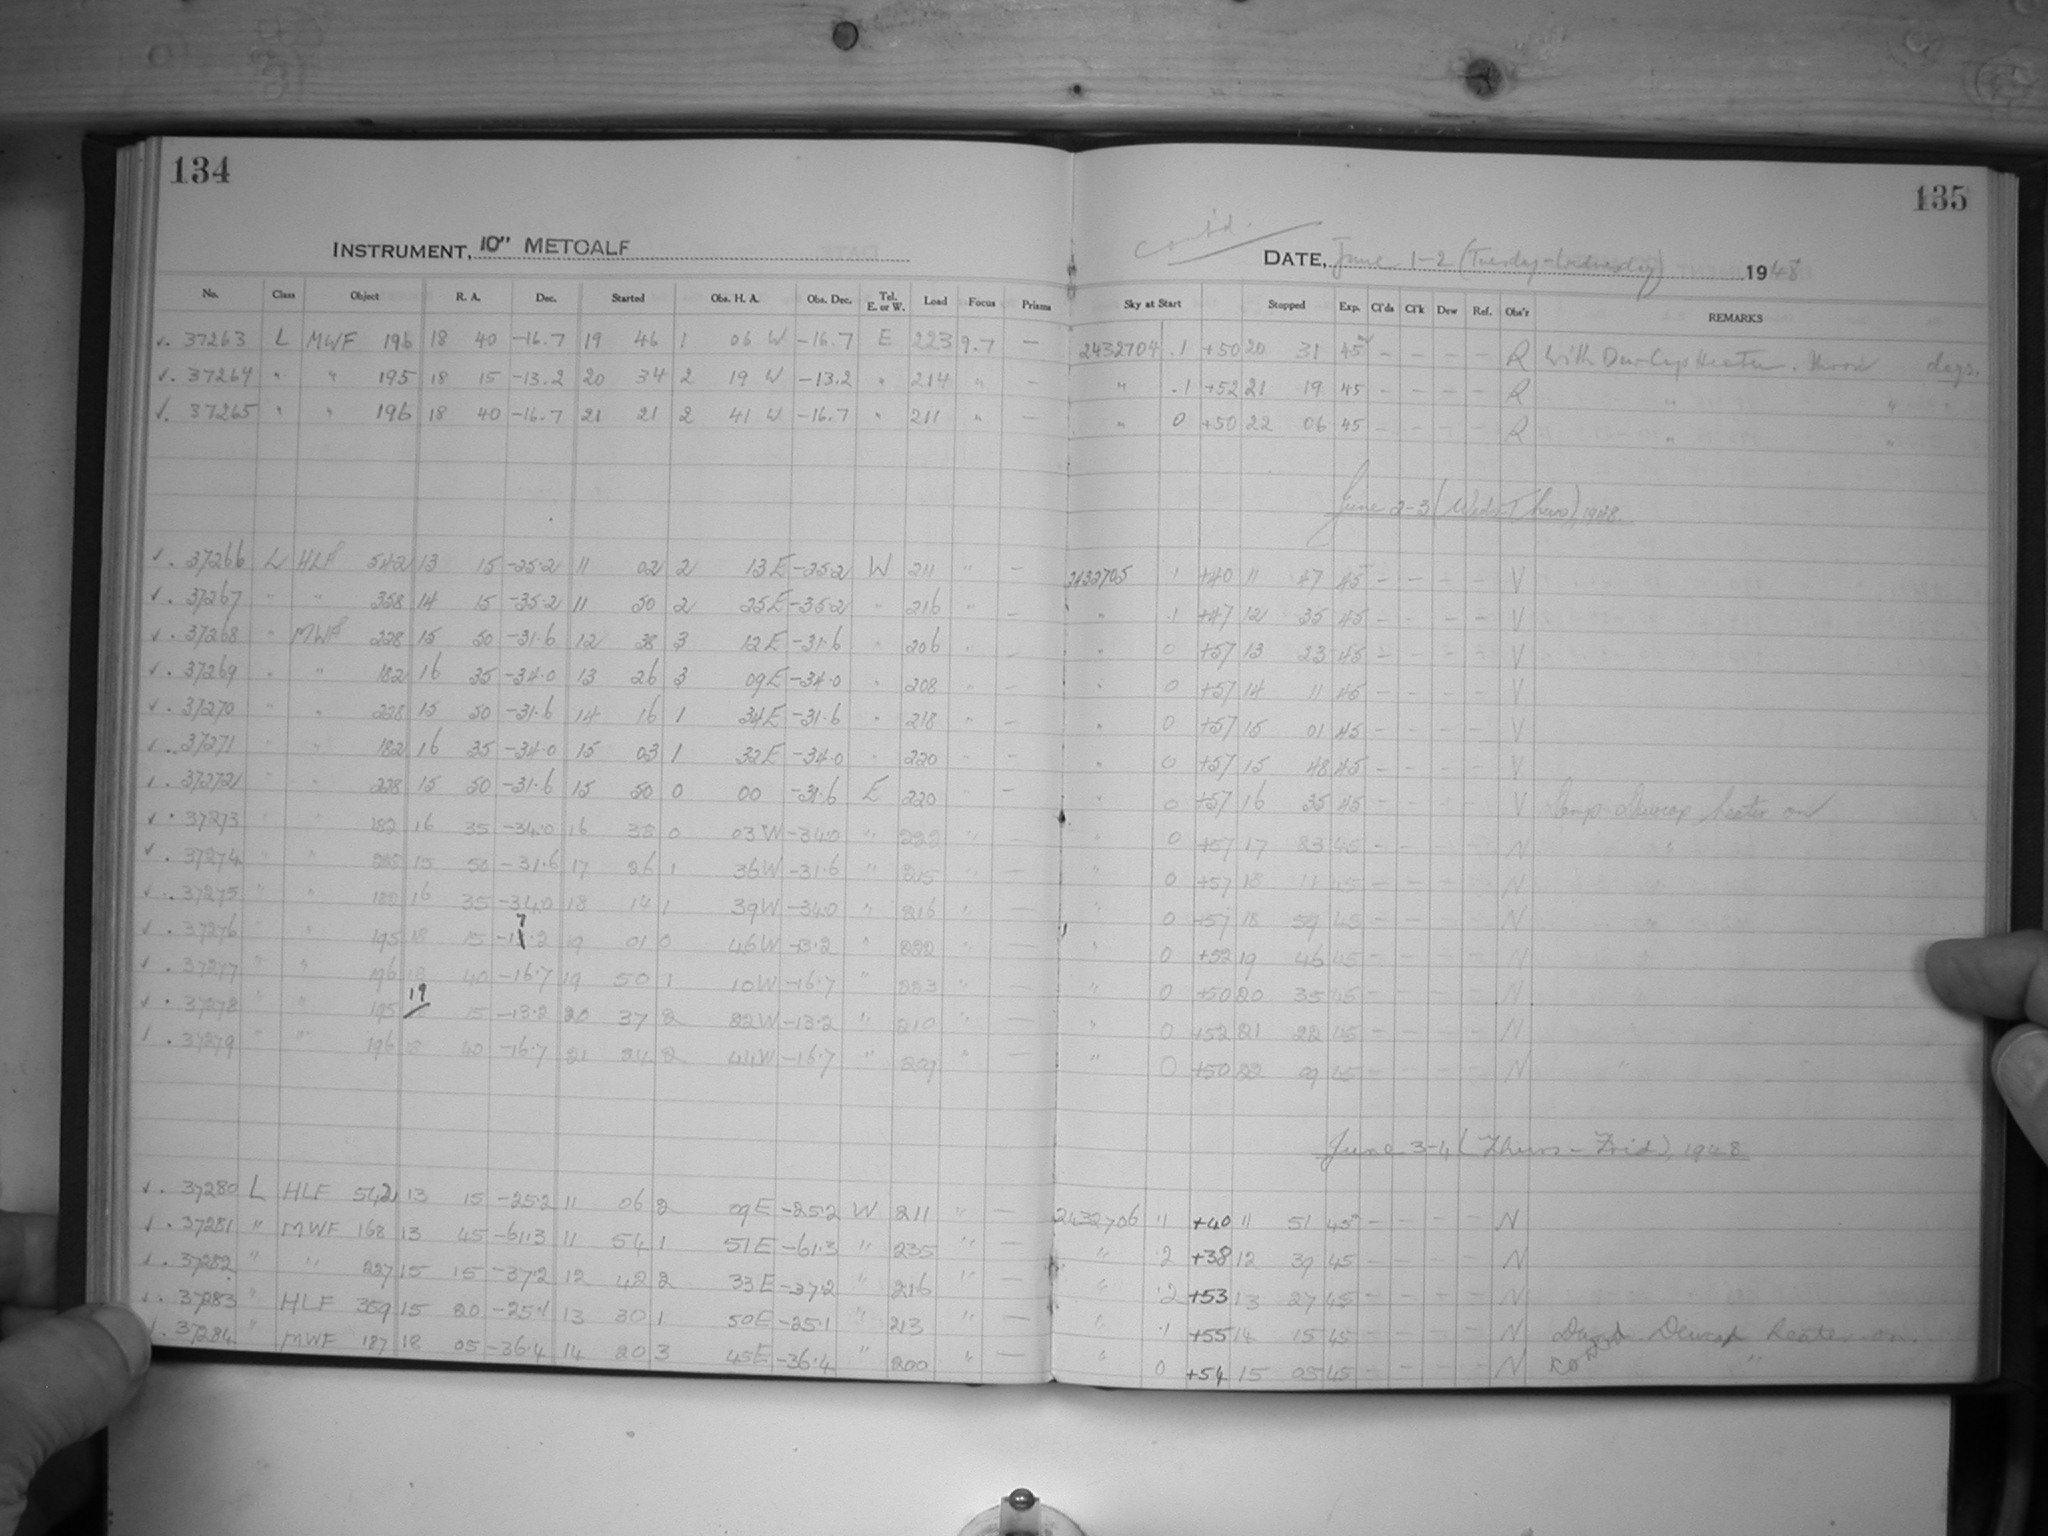 134
135
cont'd.
INSTRUMENT, 10" METCALF
DATE, June 1-2 (Tuesday-Wednesday) 1948
No. Class Object R. A. Dec. Started Obs. H. A. Obs. Dec. Tel. E. or W. Load Focus Prisms Sky at Start Stopped Exp. Cl'ds Cl'k Dew Ref. Obs'r REMARKS
✓. 37263 L MWF 196 18 40 -16.7 19 46 1 06 W -16.7 E 223 9.7 — 2432704 .1 +50 20 31 45 - - - - R With Dew Cap Heater. days.
✓. 37264 " " 195 18 15 -13.2 20 34 2 19 W -13.2 " 214 " - " .1 +52 21 19 45 - - - - R " "
✓. 37265 " " 196 18 40 -16.7 21 21 2 41 W -16.7 " 211 " — " 0 +50 22 06 45 - - - - R " "
June 2-3 (Weds-Thurs), 1948
✓. 37266 L HLF 542 13 15 -25.2 11 02 2 13 E -25.2 W 211 " — 2432705 .1 +40 11 47 45 - - - - V
✓. 37267 " " 358 14 15 -35.2 11 50 2 25 E -35.2 " 216 " — " .1 +47 12 35 45 - - - - V
✓. 37268 " MWF 228 15 50 -31.6 12 38 3 12 E -31.6 " 206 " — " 0 +57 13 23 45 - - - - V
✓. 37269 " " 182 16 35 -34.0 13 26 3 09 E -34.0 " 208 " — " 0 +57 14 11 45 - - - - V
✓. 37270 " " 228 15 50 -31.6 14 16 1 34 E -31.6 " 218 " — " 0 +57 15 01 45 - - - - V
✓. 37271 " " 182 16 35 -34.0 15 03 1 32 E -34.0 " 220 - - " 0 +57 15 48 45 - - - - V
✓. 37272 " " 228 15 50 -31.6 15 50 0 00 -31.6 E 220 " - " 0 +57 16 35 45 - - - - V Dewcap heater on
✓. 37273 " " 182 16 35 -34.0 16 38 0 03 W -34.0 " 222 " — " 0 +57 17 23 45 - - - - N "
✓. 37274 " " 228 15 50 -31.6 17 26 1 36 W -31.6 " 215 " — " 0 +57 18 11 45 - - - - N "
✓. 37275 " " 182 16 35 -34.0 18 14 1 39 W -34.0 " 216 " — " 0 +57 18 59 45 - - - - N "
✓. 37276 " 195 18 15 -13.2 19 01 0 46 W -13.2 " 222 " — " 0 +52 19 46 45 - - - - N "
✓. 37277 " " 196 18 40 -16.7 19 50 1 10 W -16.7 " 223 " — " 0 +50 20 35 45 - - - - N "
✓. 37278 " " 195 19 15 -13.2 20 37 2 22 W -13.2 " 210 " — " 0 +52 21 22 45 - - - - N "
✓. 37279 " " 196 18 40 -16.7 21 24 2 44 W -16.7 " 209 " — " 0 +50 22 09 45 - - - - N "
June 3-4 (Thurs - Frid), 1948
✓. 37280 L HLF 542 13 15 -25.2 11 06 2 09 E -25.2 W 211 " — 2432706 .1 +40 11 51 45 - - - - N
✓. 37281 " MWF 168 13 45 -61.3 11 54 1 51 E -61.3 " 235 " — " .2 +38 12 39 45 - - - - N
✓. 37282 " " 227 15 15 -37.2 12 42 2 33 E -37.2 " 216 " — " .2 +53 13 27 45 - - - - N
✓. 37283 " HLF 359 15 20 -25.1 13 30 1 50 E -25.1 " 213 " — " .1 +55 14 15 45 - - - - N Dewcap heater on.
✓. 37284 " MWF 187 18 05 -36.4 14 20 3 45 E -36.4 " 200 " — " 0 +54 15 05 45 - - - - N "